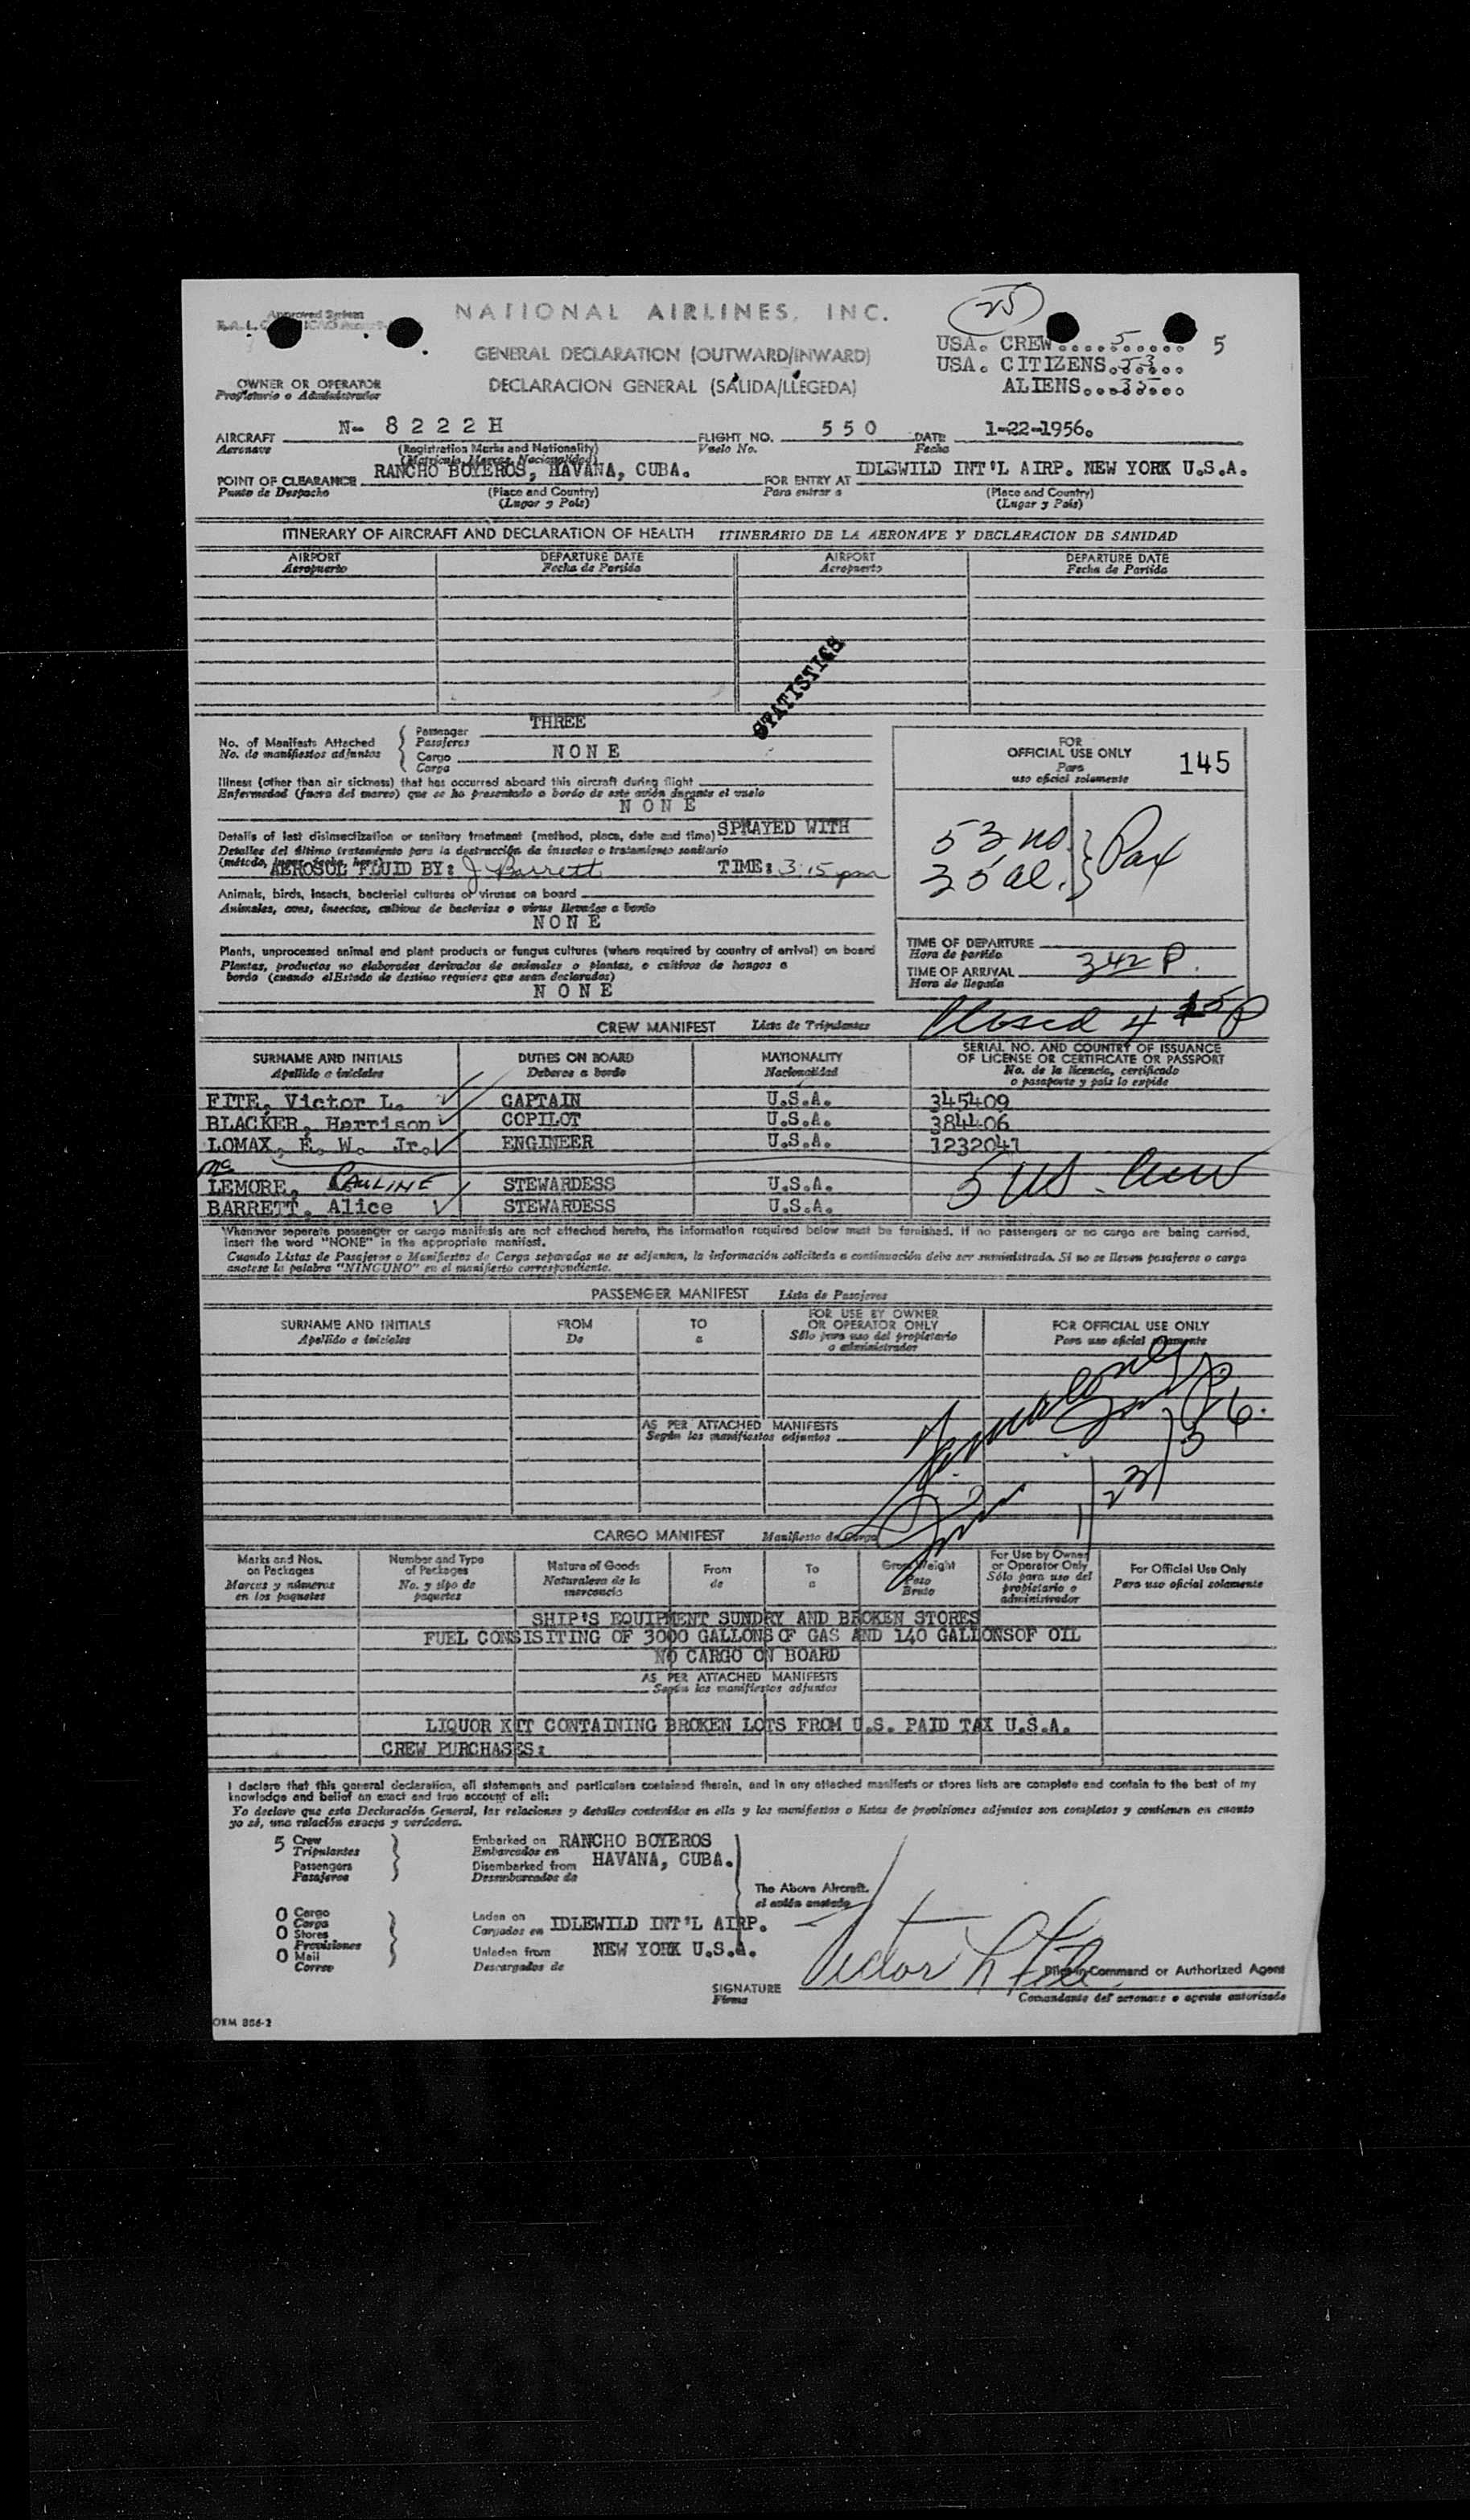 Approved System
NATIONAL AIRLINES, INC.
25
GENERAL DECLARATION (OUTWARD/INWARD)
DECLARACION GENERAL (SALIDA/LLEGEDA)
USA. CREW....5...... 5
USA. CITIZENS.53....
ALIENS...35....
OWNER OR OPERATOR
Propietario o Administrador
AIRCRAFT N- 8222H FLIGHT NO. 550 DATE 1-22-1956.
Aeronave (Registration Marks and Nationality) Vuelo No. Fecha
(Matricula, Marcas, Nacionalidad)
POINT OF CLEARANCE RANCHO BOYEROS, HAVANA, CUBA. FOR ENTRY AT IDLEWILD INT'L AIRP. NEW YORK U.S.A.
Punto de Despacho (Place and Country) Para entrar a (Place and Country)
(Lugar y País) (Lugar y País)
ITINERARY OF AIRCRAFT AND DECLARATION OF HEALTH ITINERARIO DE LA AERONAVE Y DECLARACION DE SANIDAD
AIRPORT DEPARTURE DATE AIRPORT DEPARTURE DATE
Aeropuerto Fecha de Partida Aeropuerto Fecha de Partida
STATISTICS
No. of Manifests Attached Passenger THREE
No. de manifiestos adjuntos Pasajeros
Cargo NONE
Carga
FOR
OFFICIAL USE ONLY 145
Para
uso oficial solamente
Illness (other than air sickness) that has occurred aboard this aircraft during flight
Enfermedad (fuera del mareo) que se ha presentado a bordo de este avión durante el vuelo
NONE
Details of last disinsectization or sanitary treatment (method, place, date and time) SPRAYED WITH
Detalles del último tratamiento para la destracción de insectos o tratamiento sanitario
(método, lugar, fecha, hora)
AEROSOL FLUID BY: J Barrett TIME: 3:15 pm
53
35 al. Pax
Animals, birds, insects, bacterial cultures or viruses on board
Animales, aves, insectos, cultivos de bacterias o virus llevados a bordo
NONE
Plants, unprocessed animal and plant products or fungus cultures (where required by country of arrival) on board
Plantas, productos no elaborados derivados de animales o plantas, o cultivos de hongos a
bordo (cuando el Estado de destino requiere que sean declarados)
NONE
TIME OF DEPARTURE
Hora de partida 342 P.
TIME OF ARRIVAL
Hora de llegada
Closed 4 15 P
CREW MANIFEST Lista de Tripulantes
SURNAME AND INITIALS DUTIES ON BOARD NATIONALITY SERIAL NO. AND COUNTRY OF ISSUANCE
OF LICENSE OR CERTIFICATE OR PASSPORT
Apellido e iniciales Deberes a bordo Nacionalidad No. de la licencia, certificado
o pasaporte y país lo expide
FITE, Victor L. CAPTAIN U.S.A. 345409
BLACKER, Harrison COPILOT U.S.A. 384406
LOMAX, E. W. Jr. ENGINEER U.S.A. 1232041
Mc
LEMORE, PAULINE STEWARDESS U.S.A. 5 US. Crew
BARRETT, Alice STEWARDESS U.S.A.
Whenever separate passenger or cargo manifests are not attached hereto, the information required below must be furnished. If no passengers or no cargo are being carried,
insert the word "NONE" in the appropriate manifest.
Cuando Listas de Pasajeros o Manifiestos de Carga separados no se adjuntan, la información solicitada a continuación debe ser suministrada. Si no se llevan pasajeros o carga
anotese la palabra "NINGUNO" en el manifiesto correspondiente.
PASSENGER MANIFEST Lista de Pasajeros
SURNAME AND INITIALS FROM TO FOR USE BY OWNER
OR OPERATOR ONLY FOR OFFICIAL USE ONLY
Apellido e iniciales De a Sólo para uso del propietario
o administrador Para uso oficial solamente
AS PER ATTACHED MANIFESTS
Según los manifiestos adjuntos
1/23/56.
CARGO MANIFEST Manifiesto de Carga
Marks and Nos.
on Packages
Marcas y números
en los paquetes
Number and Type
of Packages
No. y tipo de
paquetes
Nature of Goods
Naturaleza de la
mercancía
From
de
To
a
Gross Weight
Peso
Bruto
For Use by Owner
or Operator Only
Sólo para uso del
propietario o
administrador
For Official Use Only
Para uso oficial solamente
SHIP'S EQUIPMENT SUNDRY AND BROKEN STORES
FUEL CONSISITING OF 3000 GALLONS OF GAS AND 140 GALLONSOF OIL
NO CARGO ON BOARD
AS PER ATTACHED MANIFESTS
Según los manifiestos adjuntos
LIQUOR KIT CONTAINING BROKEN LOTS FROM U.S. PAID TAX U.S.A.
CREW PURCHASES:
I declare that this general declaration, all statements and particulars contained therein, and in any attached manifests or stores lists are complete and contain to the best of my
knowledge and belief an exact and true account of all:
Yo declaro que esta Declaración General, las relaciones y detalles contenidos en ella y los manifiestos o listas de provisiones adjuntos son completos y contienen en cuanto
yo sé, una relación exacta y verdadera.
5 Crew
Tripulantes
Passengers
Pasajeros
Embarked on RANCHO BOYEROS
Embarcados en
Disembarked from HAVANA, CUBA.
Desembarcados de
The Above Aircraft.
el avión anotado
0 Cargo
Carga
0 Stores
Provisiones
0 Mail
Correo
Laden on IDLEWILD INT'L AIRP.
Cargados en
Unladen from NEW YORK U.S.A.
Descargados de
SIGNATURE Victor L Fite Pilot-in-Command or Authorized Agent
Firma Comandante del aeronave o agente autorizado
ORM 886-2